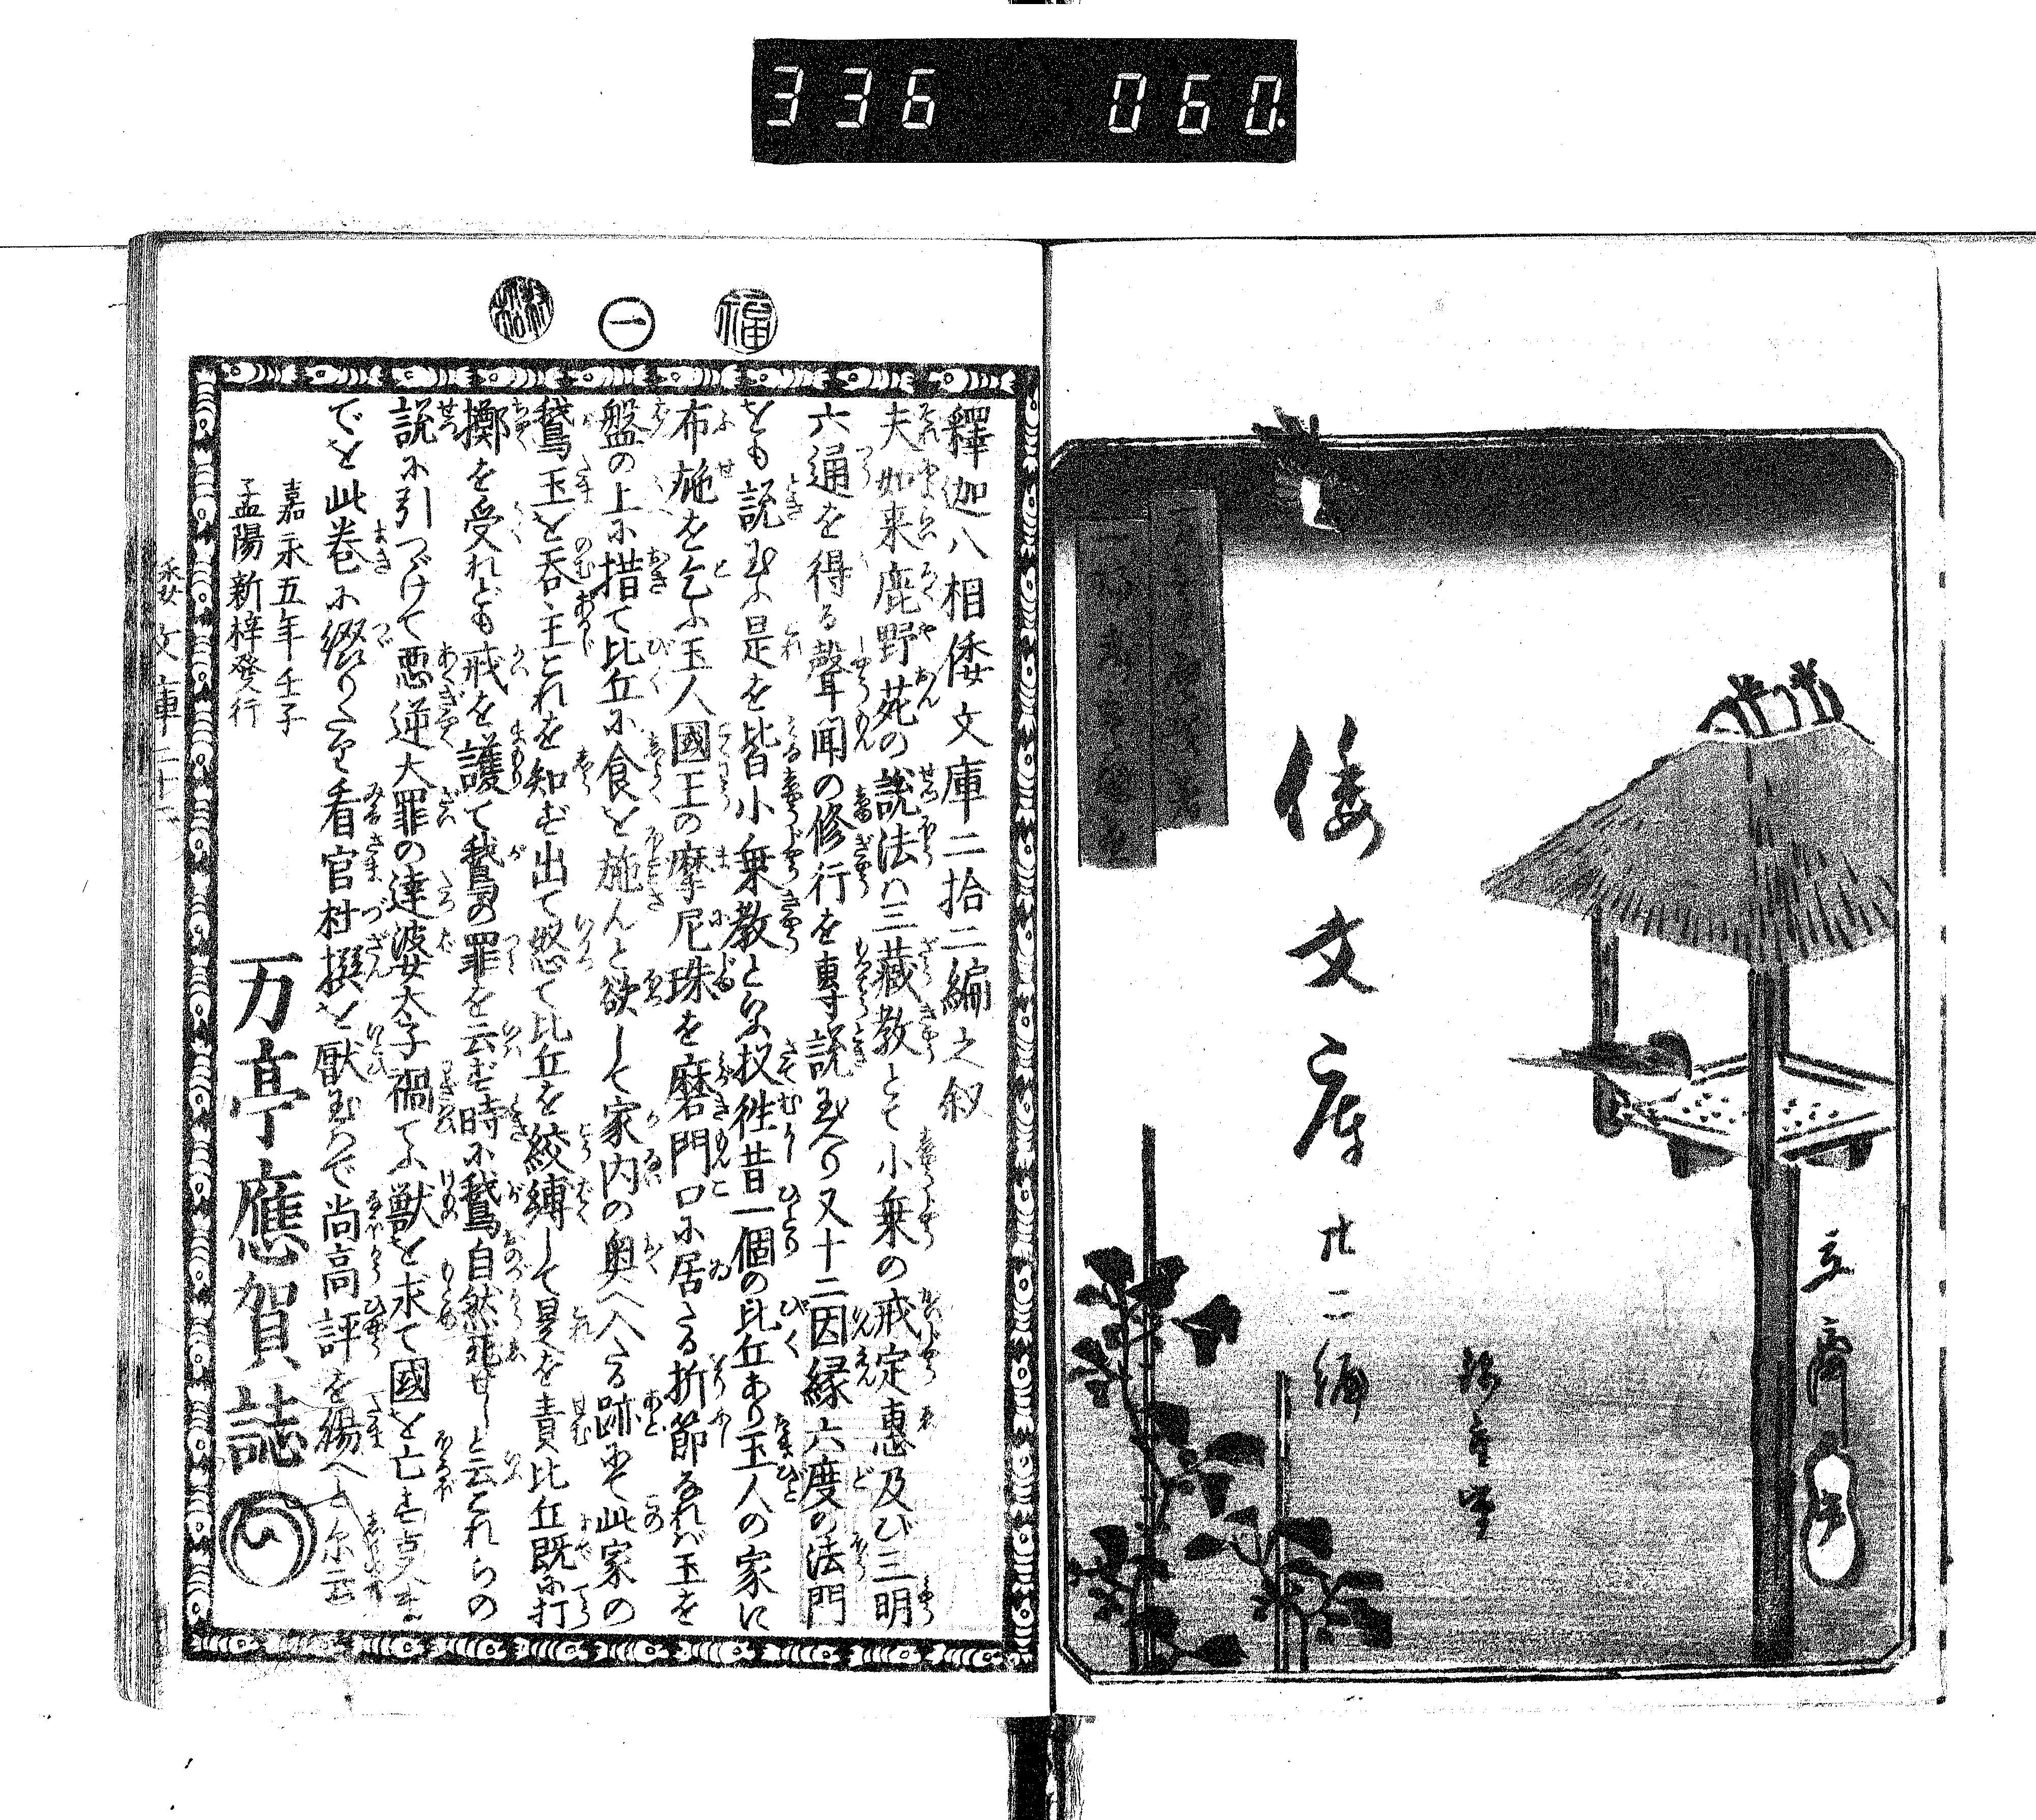 336 060.
倭文庫
廿二編
錦重堂
立齋
福
一
釋迦八相倭文庫二拾二編之叙
夫如来鹿野苑の説法ハ三藏教とて小乗の戒定惠及び三明
六通を得る聲聞の修行を専説玉へり又十二因縁六度の法門
をも説玉ふ是を皆小乗教と云扨徃昔一個の比丘あり玉人の家に
布施を乞ふ玉人國王の摩尼珠を磨門口に居たる折節なれバ玉を
盤の上に措て比丘に食を施んと欲して家内の奥へ入たる跡にて此家の
鵞玉を呑主これを知ず出て怒て比丘を絞縛して是を責比丘既に打
擲を受れども戒を護て鵞の罪を云ず時に鵞自然死せしと云これらの
説に引つゞけて惡逆大罪の達波太子禍てふ獣を求て國を亡す
でを此巻に綴りたり看官杜撰を厭玉はで尚高評を賜へと尓云
嘉永五年壬子
孟陽新梓發行
万亭應賀誌
文庫二十二